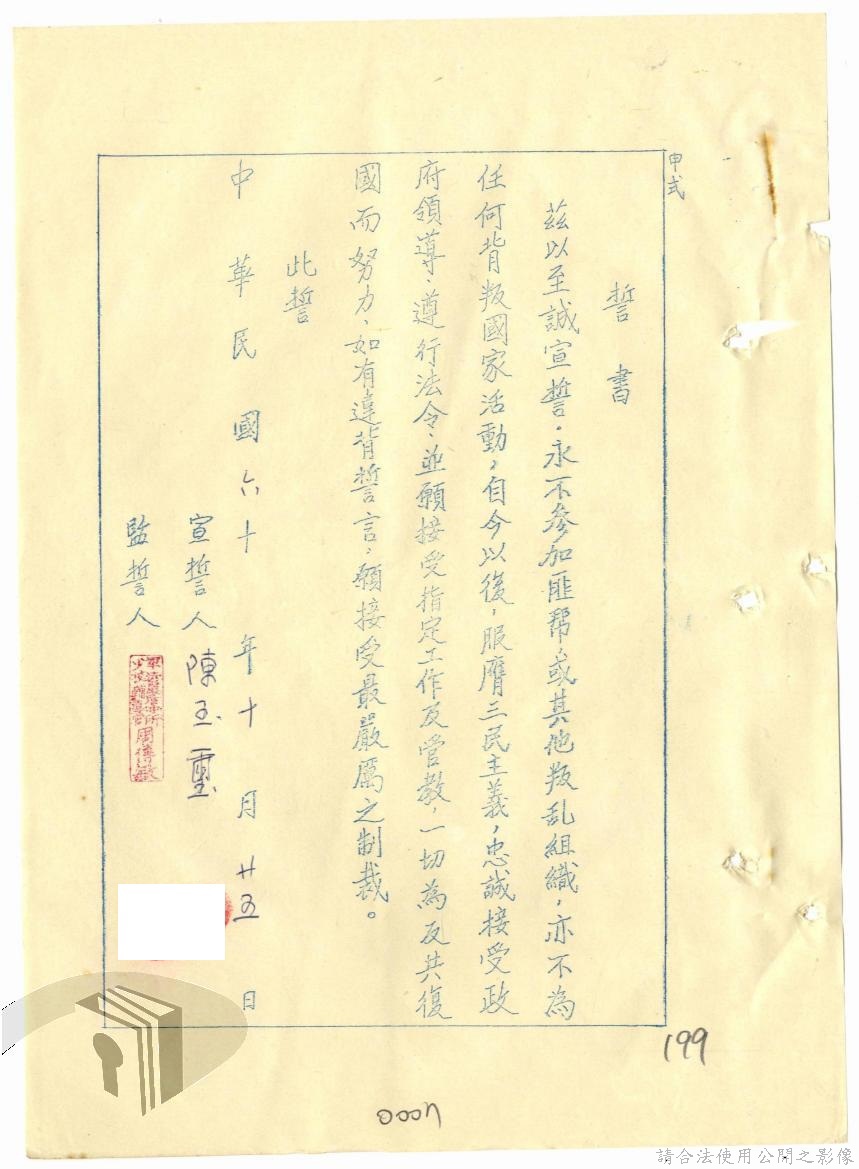 甲式
誓書
茲以至誠宣誓。永不參加匪幫、或其他叛乱組織,亦不為
任何背叛國家活動,自今以後,服膺三民主義,忠誠接受政
府領導、遵行法令、並願接受指定工作及管教,一切為反共復
國而努力、如有違背誓言,願接受最嚴厲之制裁。
此誓
中華民國六十年十月廿五日
宣誓人 陳玉璽
監誓人
199
0007
請合法使用公開之影像